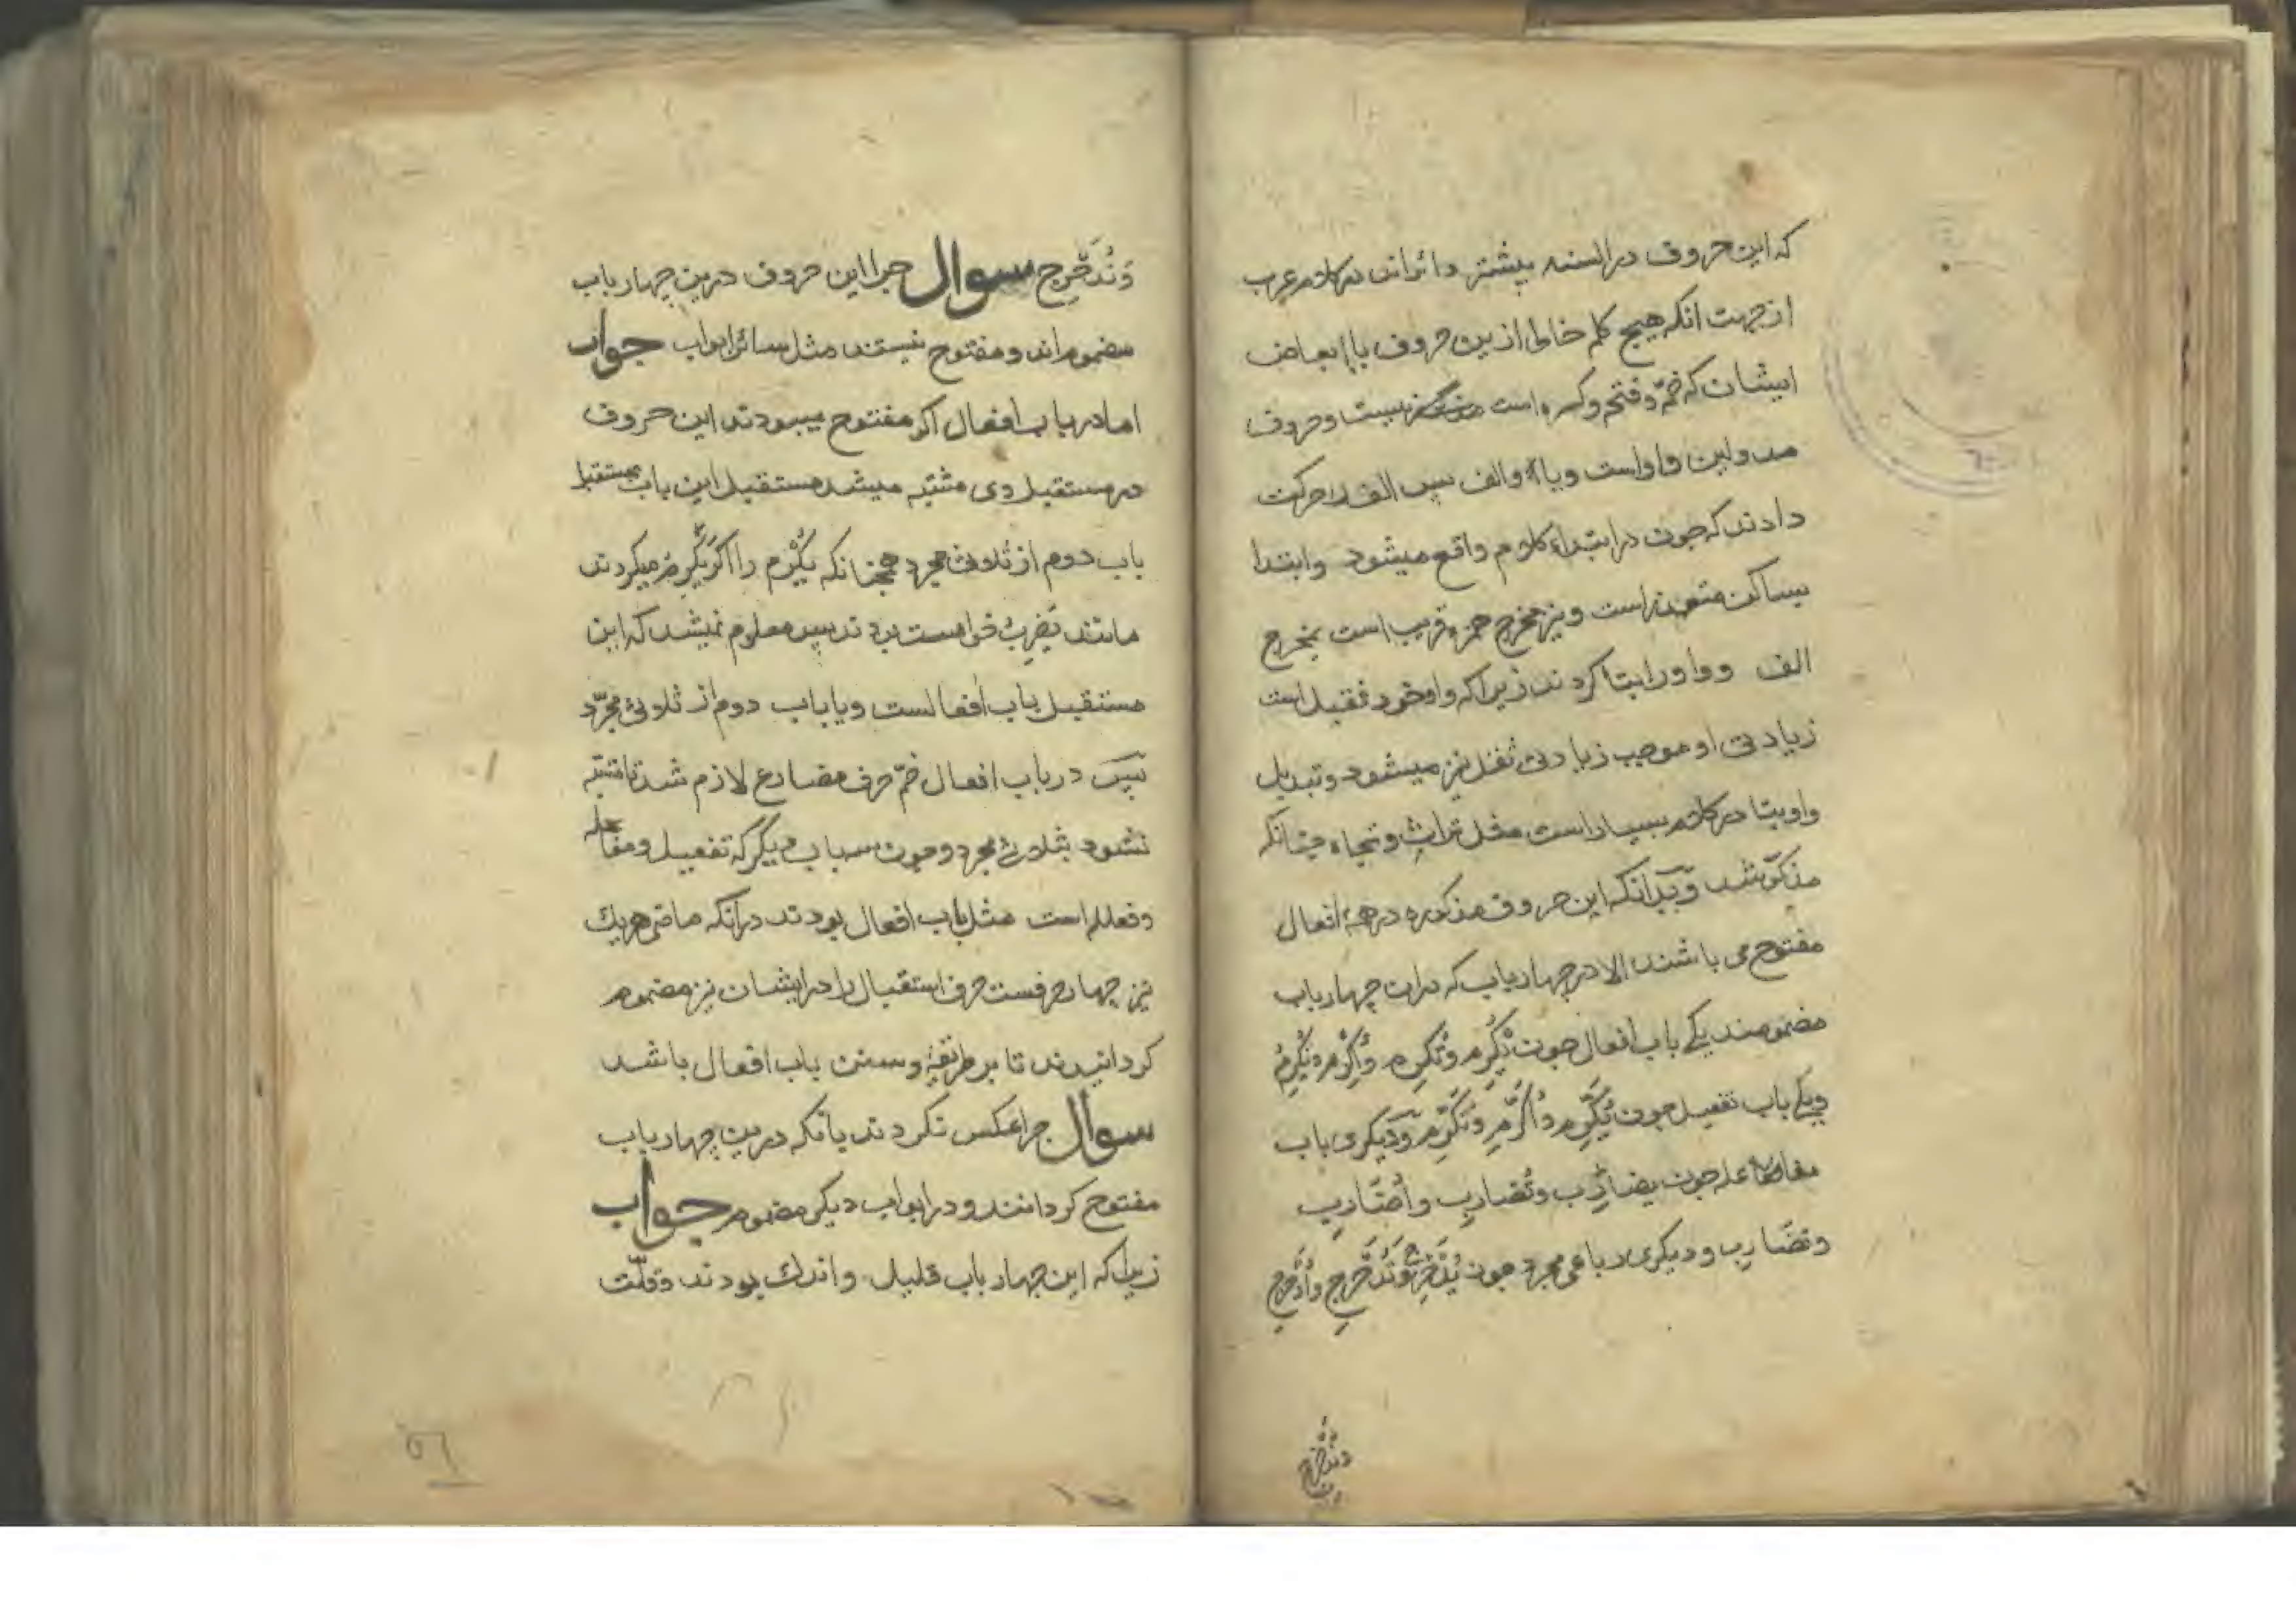 که این حروف در السنه بیشتر دائراند در کلام عرب
از جهت انکه هیچ کلمه خالی ازین حروف یا ابعاض
ایشان که ضمّه و فتحه و کسره است نیست و حروف
مد ولین واو است ویاء والف پس الف را حرکت
دادند که چون در ابتداء کلام واقع میشود وابتدا
بساکن متعذر است ونیز مخرج همزه قریب است بمخرج
الف وواو را بتا کردند زیرا که واو خود ثقیل است
زیادتی او موجب زیادتئ ثقل نیز میشود وتبدیل
واو بتا در کلام بسیار است مثل تراث وتجاه چنانکه
مذکور شد وبدانکه این حروف مذکوره در همهٔ افعال
مفتوح می باشند الا در چهار باب که دران چهار باب
مضمومند یکے باب افعال چون یُکْرِمُ وتُکْرِم واُکْرِم ونُکْرِمُ
ویکے باب تفعیل چون یُکَرِّم واُکَرِّم ونُکَرِّم ودیکری باب
مفاعله چون یضارِب وتُضارِب واُضَارِب
ونضَارِب ودیکری رباعی مجرد چون یُدَحْرِج وتُدَحْرِج واُدَحْرِج
وندحرج
وَنُدَحْرِج سوال چرا این حروف درین چهار باب
مضموم اند ومفتوح نیستند مثل سائر ابواب جواب
اما در باب افعال اکر مفتوح میبودند این حروف
در مستقبل وی مشتبه میشد مستقبل این باب بمستقبل
باب دوم از ثلاثی مجرد همچنانکه یُکْرِم را اکر یَکْرِم میکردند
مانند یَضْرِبُ خواست بودند پس معلوم نمیشد که این
مستقبل باب افعالست ویا باب دوم از ثلاثئ مجرّد
پس در باب افعال ضمّ حرف مضارع لازم شد تا مشتبه
نشود بثلاثئ مجرد وچون سه باب دیکر که تفعیل ومفاعله
وفعلله است مثل باب افعال بودند درآنکه ماضی هریك
نیز چهار حرفست حرف استقبال را در ایشان نیز مضموم
کردانیدند تا بر طریقهٔ وسنن باب افعال باشد
سوال چرا عکس نکردند یانکه درین چهار باب
مفتوح کردانند ودر ابواب دیکر مضموم جواب
زیرا که این چهار باب قلیل واندك بودند وقلّت